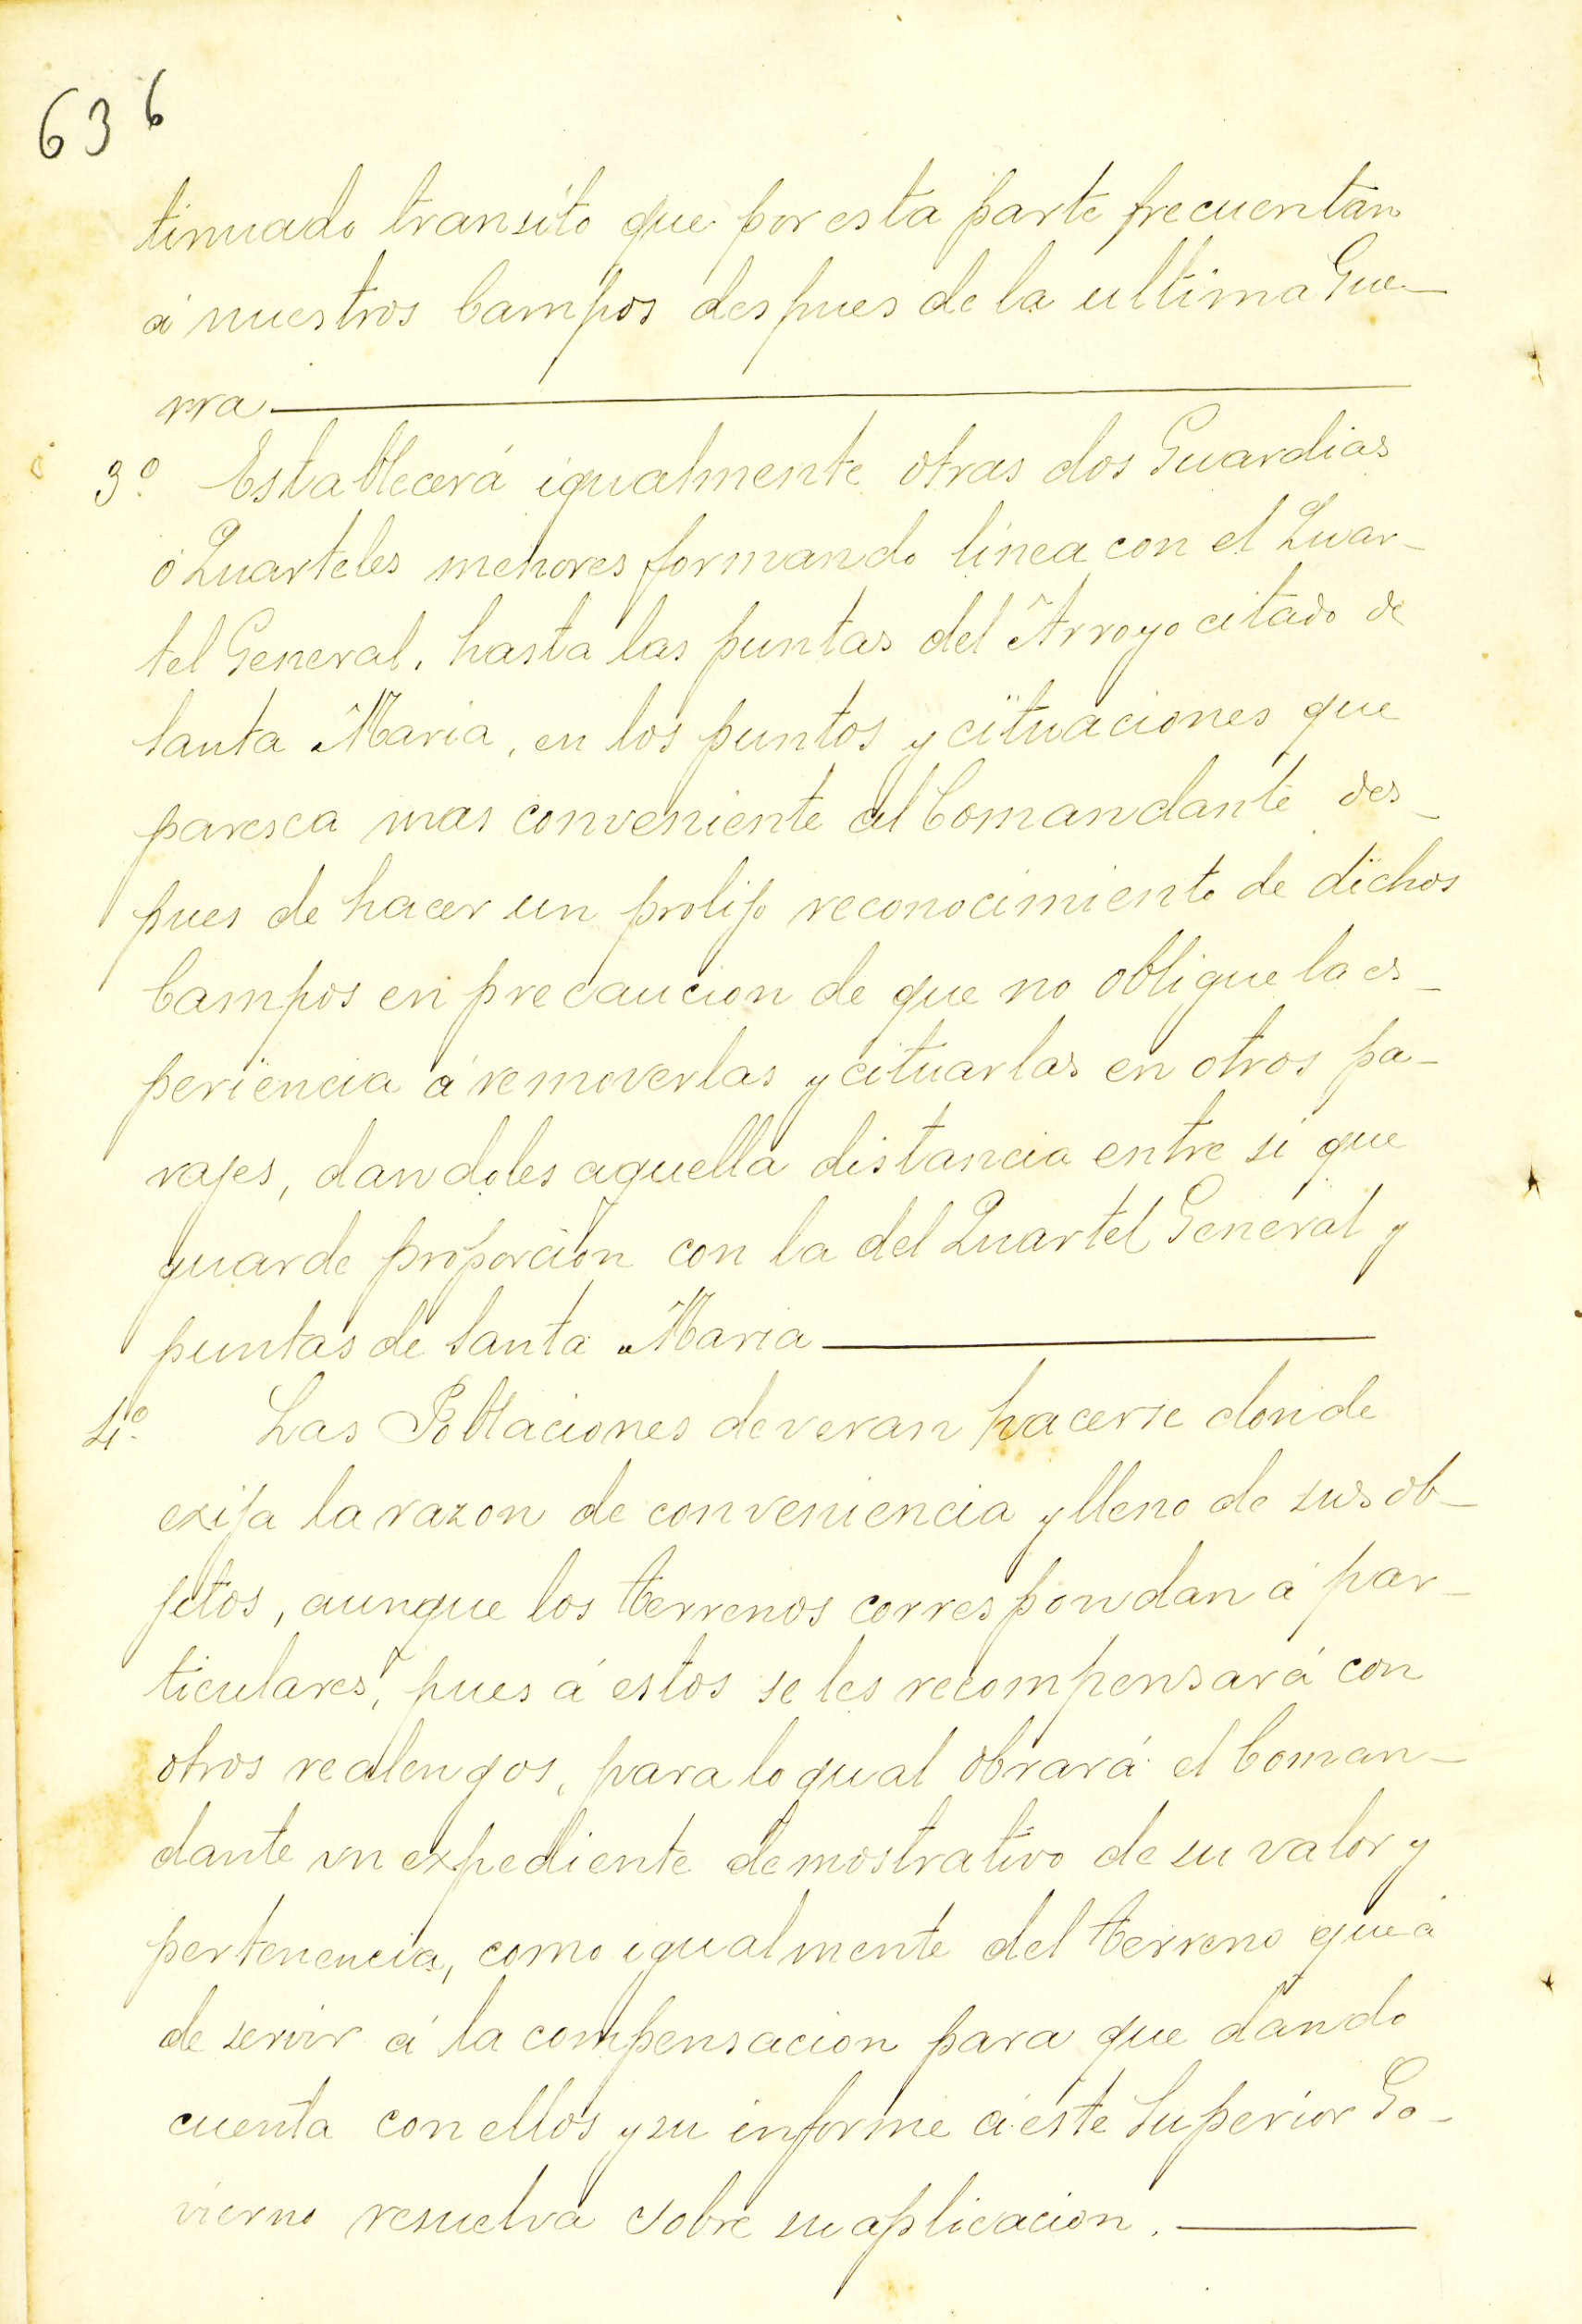 636
tinuado transito que por esta parte frecuentan
á nuestros Campos despues de la ultima Gue-
rra
3º Establecerá igualmente otras dos Guardias
ó Quarteles menores formando linea con el Quar-
tel General, hasta las puntas del Arroyo citado de
Santa Maria, en los puntos y cituaciones que
paresca mas conveniente al Comandante des-
pues de hacer un prolijo reconocimiento de dichos
Campos en precaucion de que no obligue la es-
periencia á removerlas y cituarlas en otros pa-
rajes, dandoles aquella distancia entre si que
guarde proporcion con la del Quartel General y
puntas de Santa Maria
4º Las Poblaciones deveran hacerse donde
exija la razon de conveniencia y lleno de sus ob-
jetos, aunque los terrenos correspondan á par-
ticulares, pues á estos se les recompensará con
otros realengos, para lo qual obrará el Coman-
dante un expediente demostrativo de su valor y
pertenencia, como igualmente del terreno que á
de servir á la compensacion para que dando
cuenta con ellos y su informe á este Superior Go-
vierno resuelva sobre su aplicacion.